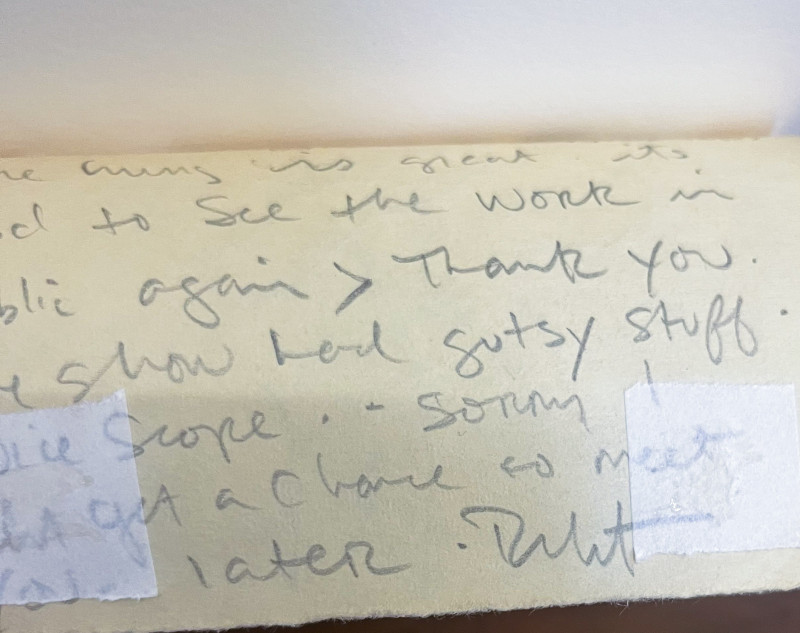 is great its
to see the work in
again > Thank you.
show had gutsy stuff.
scope .. Sorry I
get a chance to meet
later.